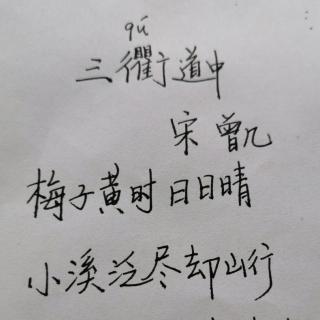 qú
三衢道中
宋 曾几
梅子黄时日日晴
小溪泛尽却山行